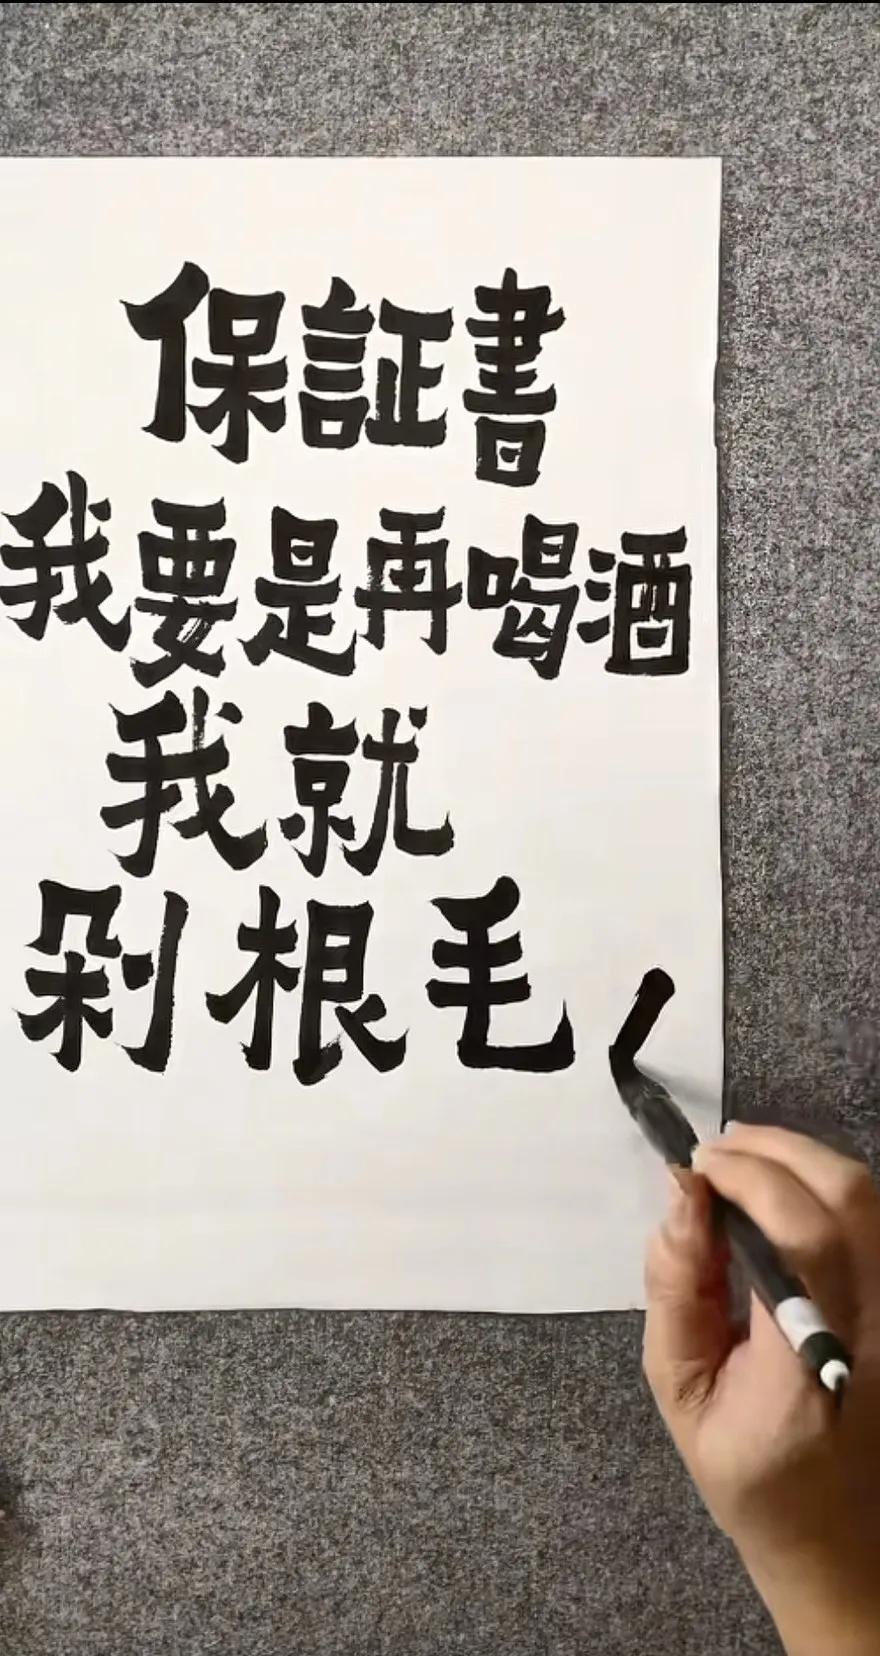 保証書
我要是再喝酒
我就
剁根毛